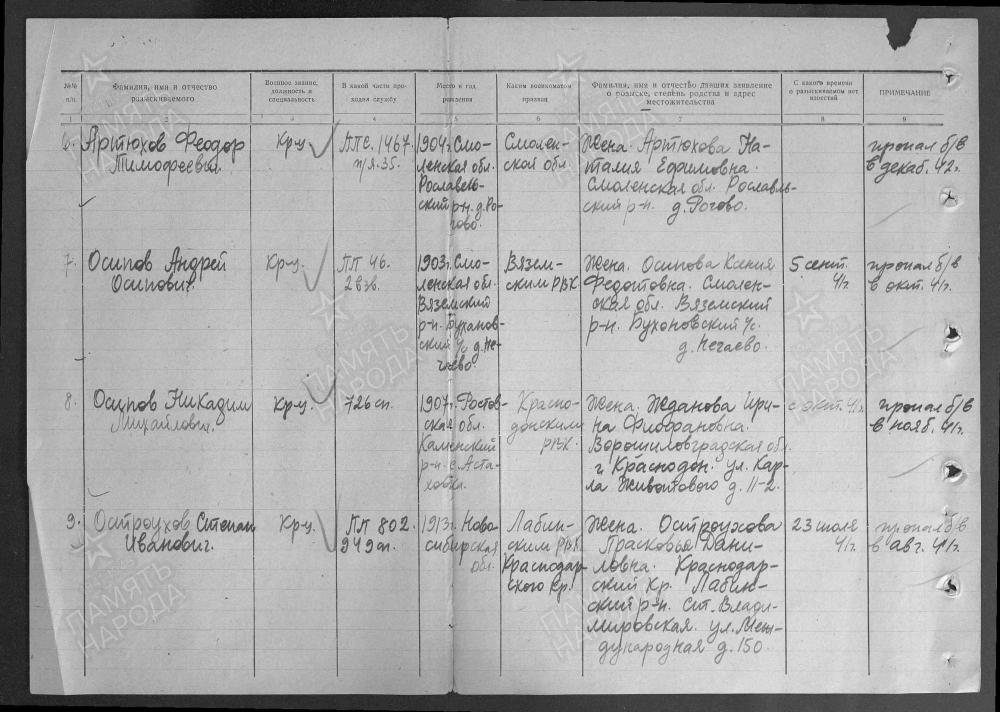 №№ п/п.
Фамилия, имя и отчество разыскиваемого
Военное звание, должность и специальность
В какой части проходил службу
Место и год рождения
Каким военкоматом призван
Фамилия, имя и отчество лица, давших заявление о розыске, степень родства и адрес местожительства
С какого времени о разыскиваемом нет известий
ПРИМЕЧАНИЕ
1 2 3 4 5 6 7 8 9
6. Артюхов Феодор
Тимофеевич.
Кр-ц
ППС. 1467.
п/я. 35.
1904г. Смо-
ленская обл.
Рославль-
ский р-н. д. Ро-
гово.
Смолен-
ской обл.
Жена. Артюхова На-
талия Ефимовна.
Смоленская обл. Рославль-
ский р-н. д. Рогово.
пропал б/в
в декаб. 42г.
7. Осипов Андрей
Осипович.
Кр-ц.
ПП 46.
2 взв.
1903г. Смо-
ленская обл.
Вяземский
р-н. Бухонов-
ский с/с д. Не-
гаево.
Вязем-
ским РВК
Жена. Осипова Ксения
Федотовна. Смолен-
ская обл. Вяземский
р-н. Бухоновский с/с.
д. Негаево.
5 сент.
41г.
пропал б/в
в окт. 41г.
8. Осипов Никадим
Михайлович.
Кр-ц.
726 сп.
1907г. Ростов-
ская обл.
Каменский
р-н. с. Аста-
ховка.
Красно-
донским
РВК.
Жена. Жданова Ири-
на
Ворошиловградская обл.
г. Краснодон. ул. Кар-
ла д. 11-2.
с окт. 41г.
пропал б/в
в нояб. 41г.
9. Остроухов Степан
Иванович.
Кр-ц.
ПП 802.
949 сп.
1913г. Ново-
сибирская
обл.
Лабин-
ским РВК
Краснодар-
ского кр.
Жена. Остроухова
Прасковья Дани-
ловна. Краснодар-
ский Кр. Лабин-
ский р-н. Ст. Влади-
мировская. ул. Меж-
дународная д. 150.
23 июля
41г.
пропал б/в
в авг. 41г.
ПАМЯТЬ
НАРОДА
ПАМЯТЬ
НАРОДА
ПАМЯТЬ
НАРОДА
ПАМЯТЬ
НАРОДА
ПАМЯТЬ
НАРОДА
ПАМЯТЬ
НАРОДА